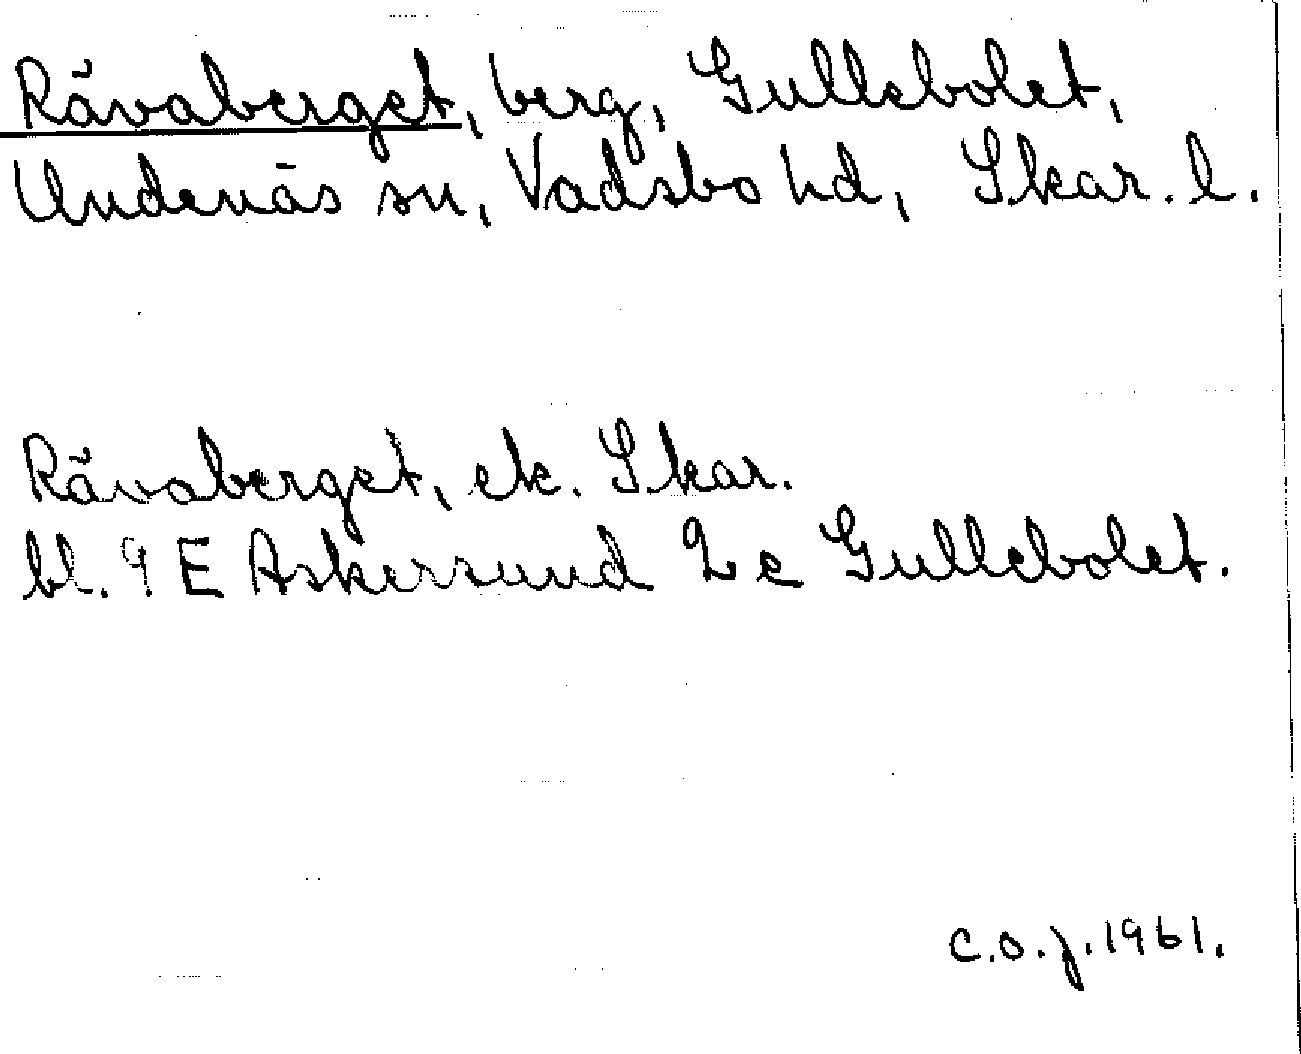 Rävaberget, berg, Gullebolet,
Undenäs sn, Vadsbo hd, Skar. l.
Rävaberget, ek. Skar.
bl. 9 E Askersund 2 c Gullebolet.
c.o.j. 1961.